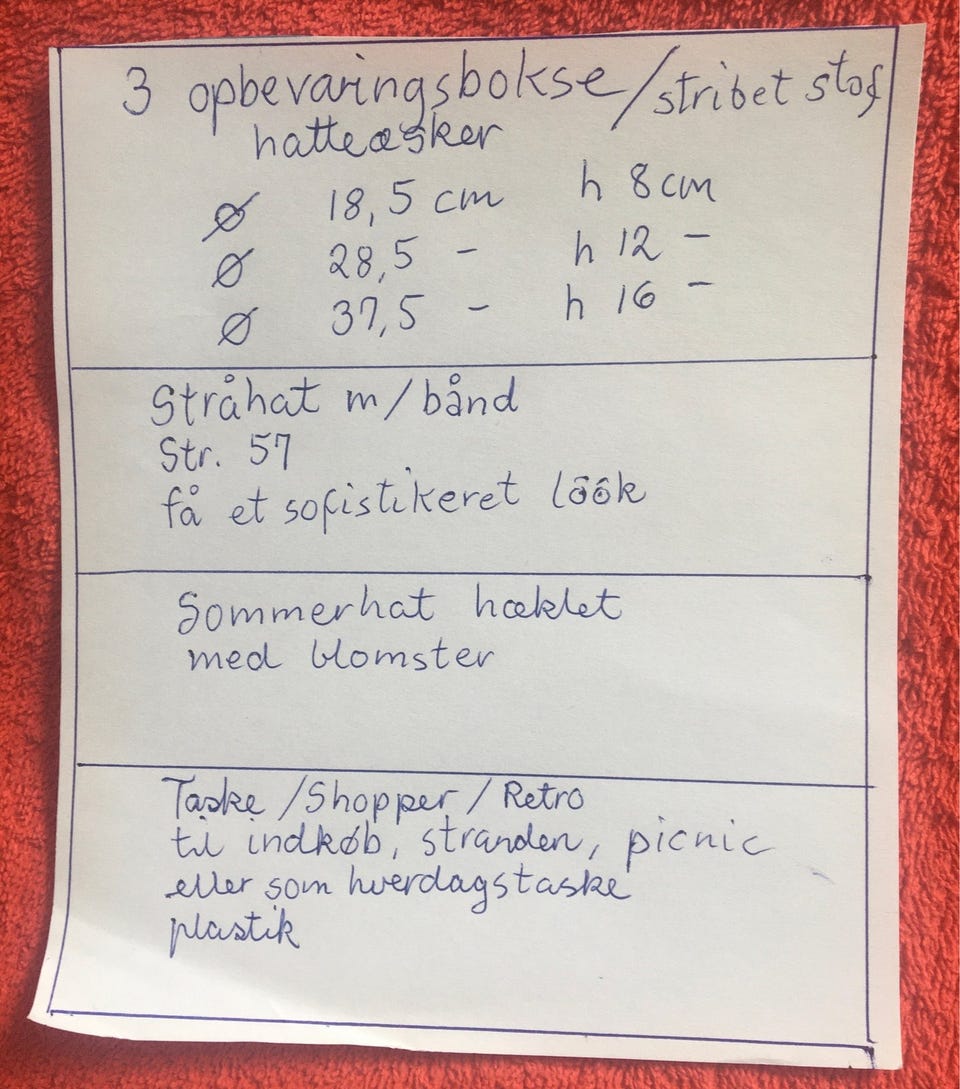 3 opbevaringsbokse/stribet stof
hatteæsker
Ø 18,5 cm h 8 cm
Ø 28,5 - h 12 -
Ø 37,5 - h 16 -
Stråhat m/bånd
Str. 57
få et sofistikeret löök
Sommerhat hæklet
med blomster
Taske/Shopper/Retro
til indkøb, stranden, picnic
eller som hverdagstaske
plastik